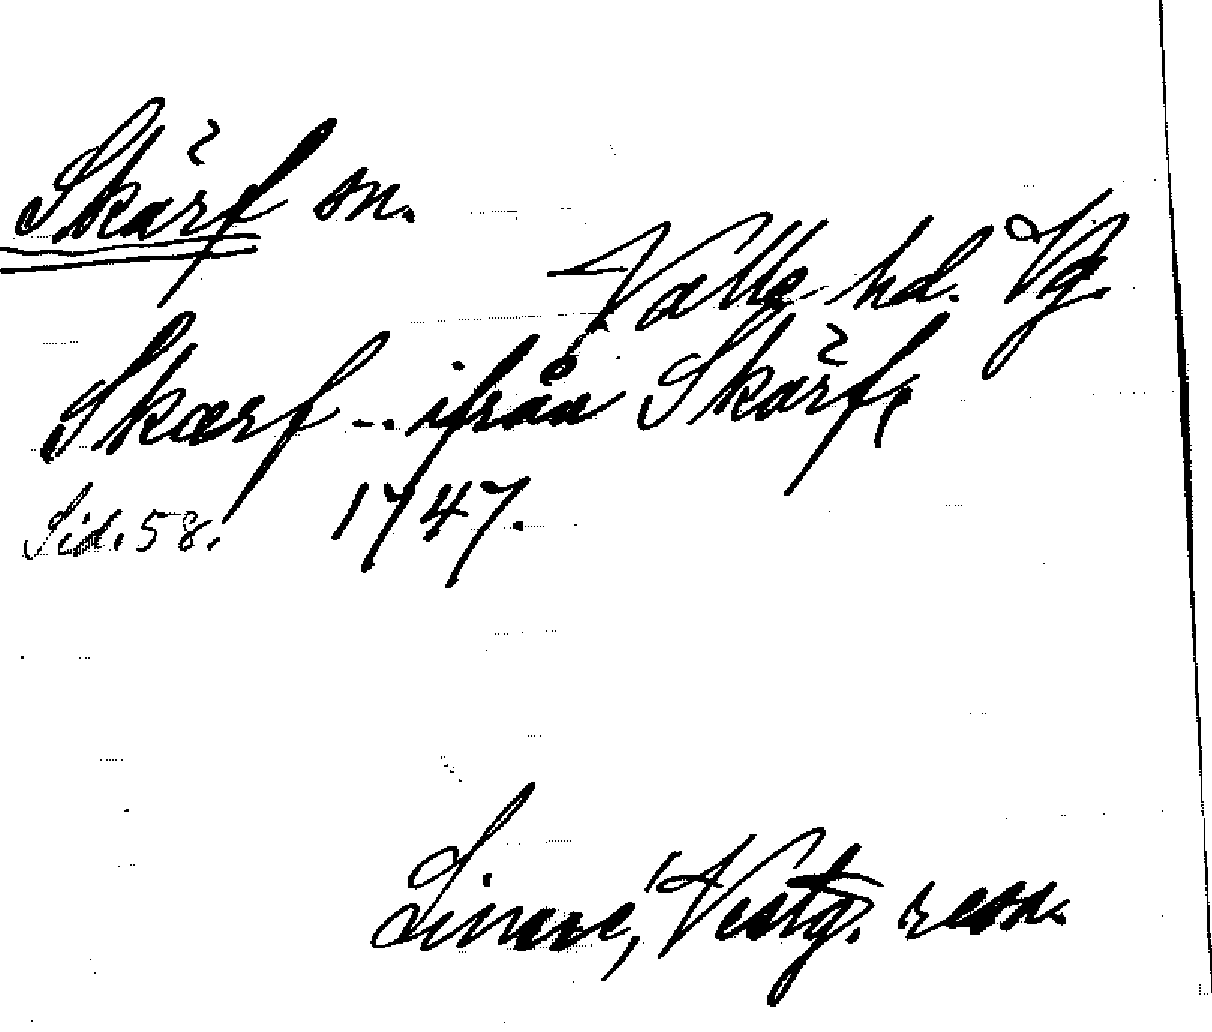 Skärf sn.
Valle hd. Vg.
Skarf -- ifrån Skärf,
Sid. 58. 1747.
Linné, Vestg. resa.